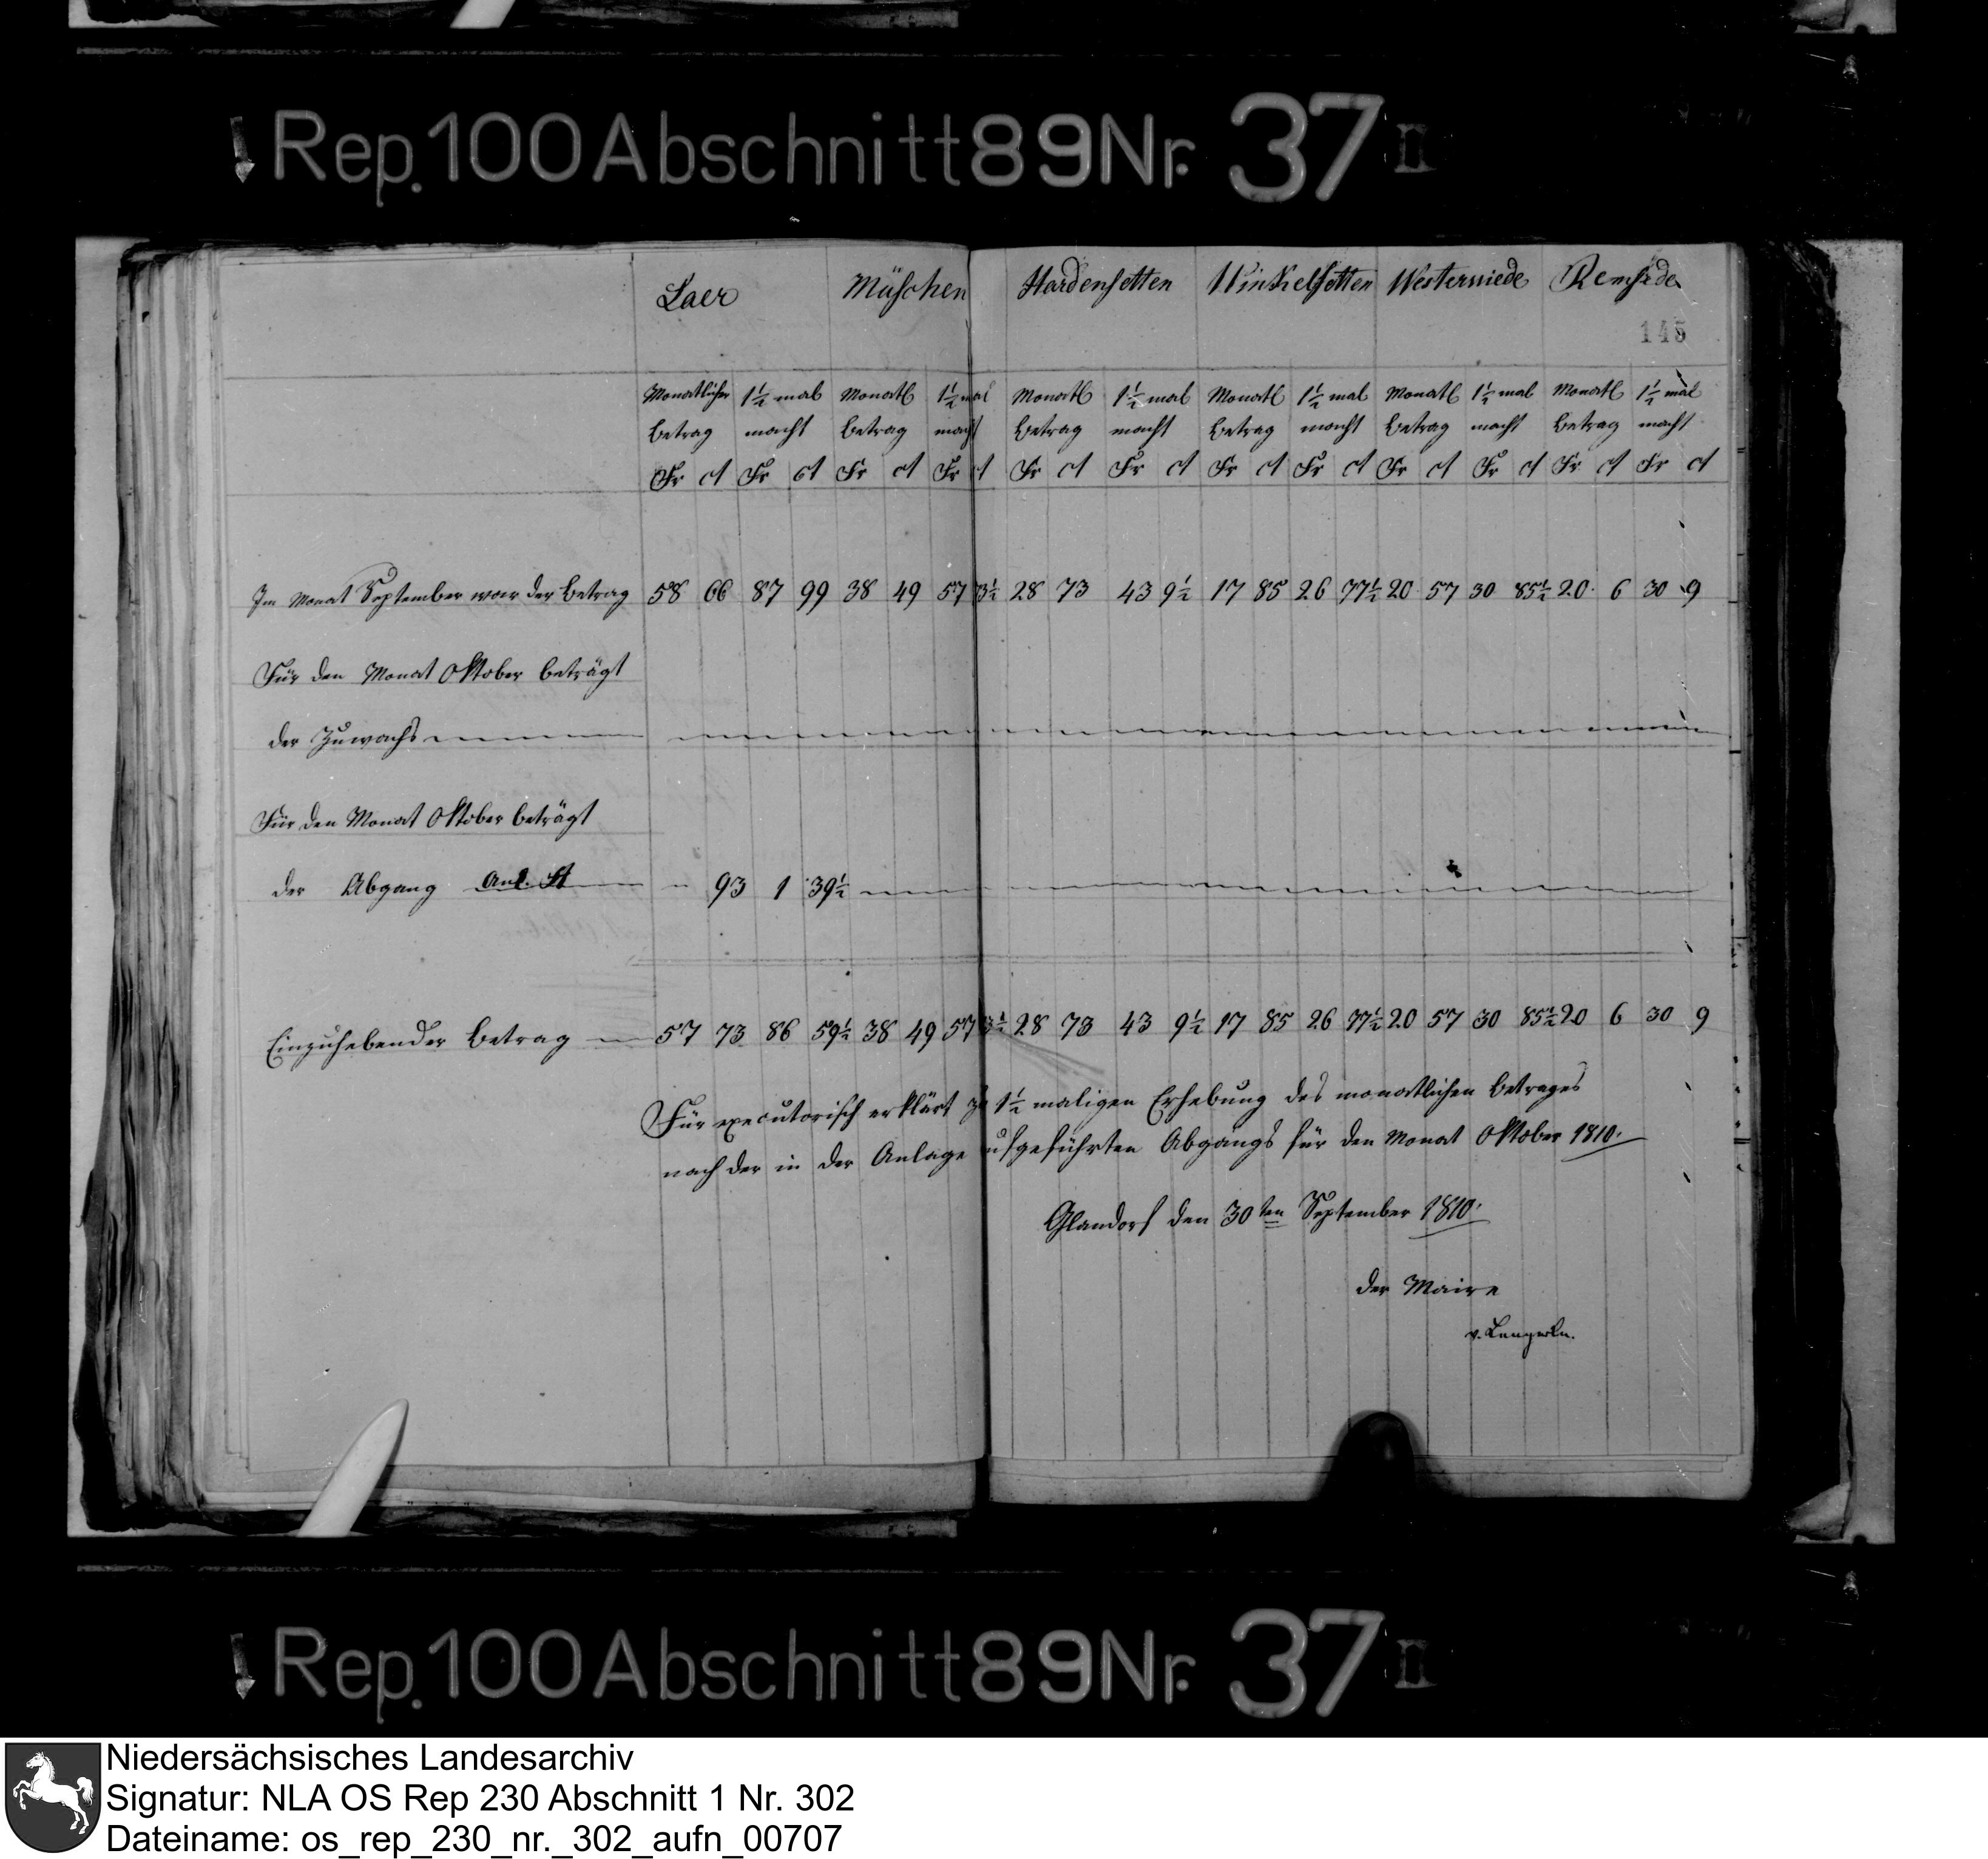 Rep. 100 Abschnitt 89 Nr. 37 II
Laer Müschen Hardensetten Winkelsetten Westerwiede Remsede
145
Monatlicher 1½ mal Monatl 1½ mal Monatl 1½ mal Monatl 1½ mal Monatl 1½ mal Monatl 1½ mal
betrag macht betrag macht betrag macht betrag macht betrag macht betrag macht
Fr ct Fr ct Fr ct Fr ct Fr ct Fr ct Fr ct Fr ct Fr ct Fr ct Fr ct Fr ct
Im Monat September war der betrag 58 66 87 99 38 49 57 73½ 28 73 43 9½ 17 85 26 77½ 20 57 30 85½ 20 6 30 9
Für den Monat Oktober beträgt
der Zuwachs
Für den Monat Oktober beträgt
der Abgang Anl. A " 93 1 39½
Einzuhebender betrag 57 73 86 59½ 38 49 57 73½ 28 73 43 9½ 17 85 26 77½ 20 57 30 85½ 20 6 30 9
Für executorisch erklärt zu 1½ maligen Erhebung des monatlichen betrages
nach der in der Anlage aufgeführten Abgangs für den Monat Oktober 1810.
Glandorf den 30ten September 1810.
der Maire
v. Lengerke.
Rep. 100 Abschnitt 89 Nr. 37 II
Niedersächsisches Landesarchiv
Signatur: NLA OS Rep 230 Abschnitt 1 Nr. 302
Dateiname: os_rep_230_nr._302_aufn_00707